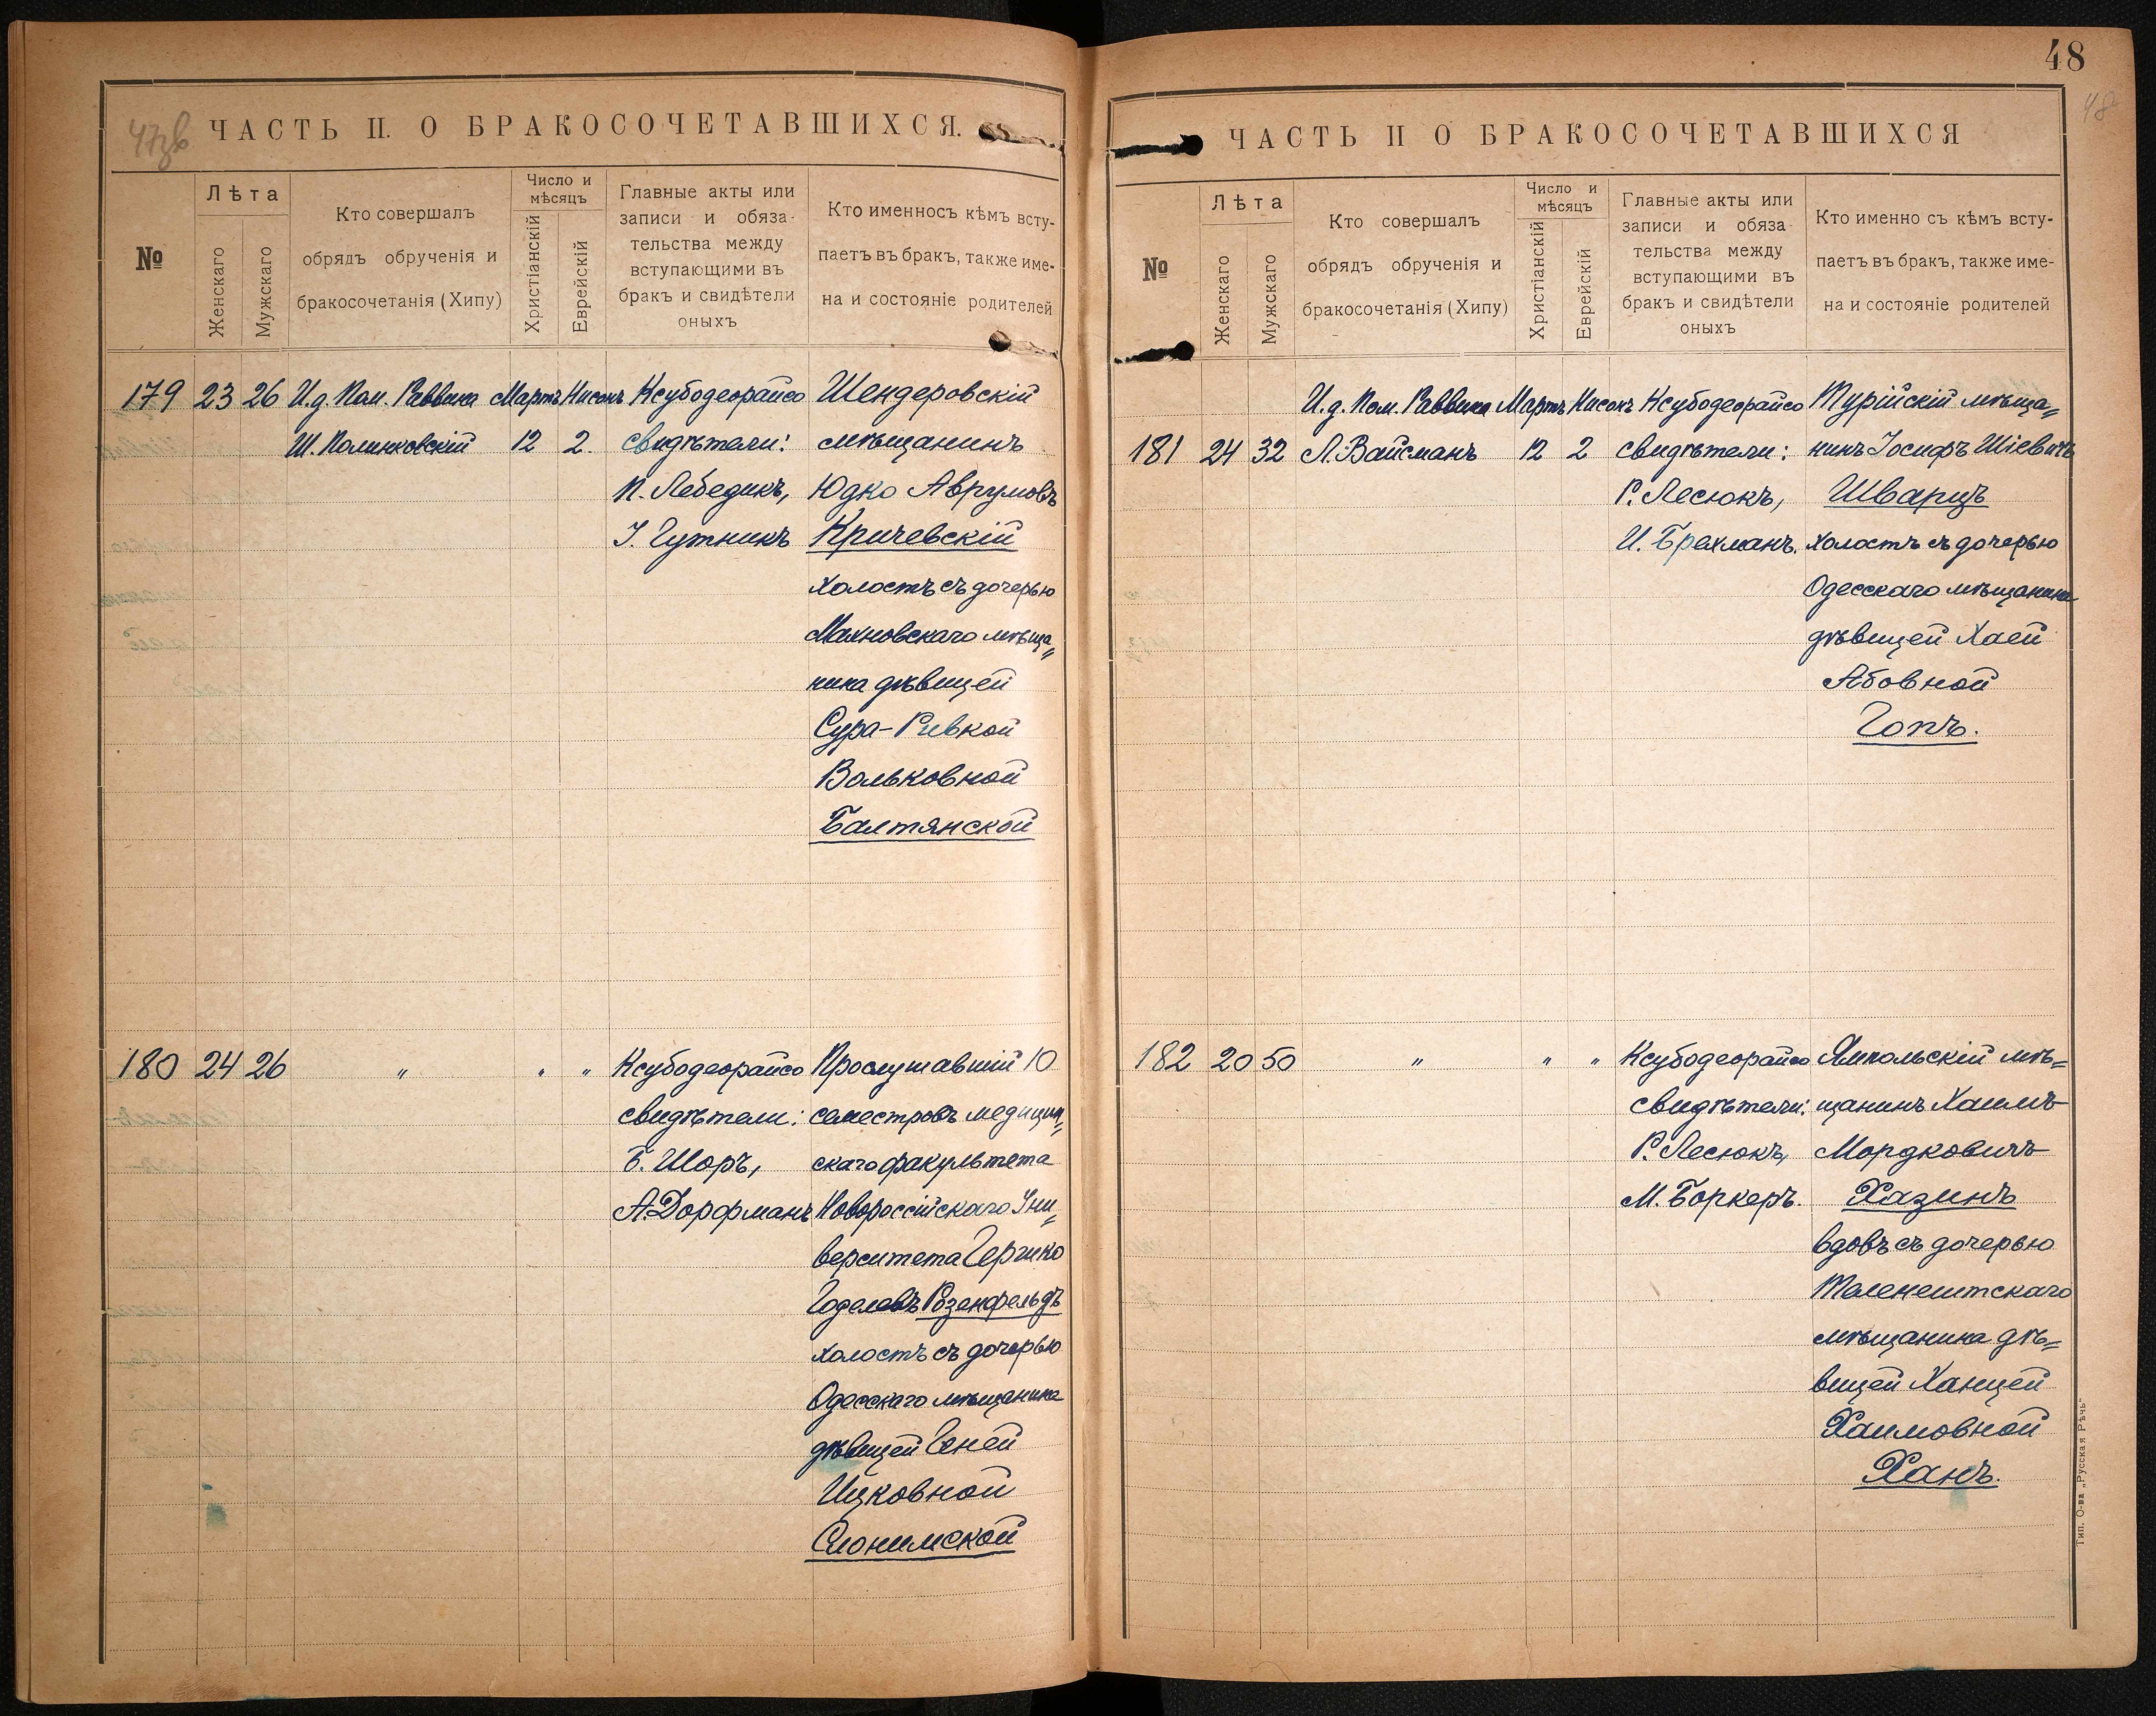 47зв
ЧАСТЬ II. О БРАКОСОЧЕТАВШИХСЯ.
№
Лѣта
Женскаго
Мужскаго
Кто совершалъ
обрядъ обрученія и
бракосочетанія (Хипу)
Число и
мѣсяцъ
Христіанскій
Еврейскій
Главные акты или
записи и обяза-
тельства между
вступающими въ
бракъ и свидѣтели
оныхъ
Кто именносъ кѣмъ всту-
паетъ въ бракъ, также име-
на и состояніе родителей
179 23 26
И.д. Пом. Раввина
Ш. Полинковскій
Мартъ
12
Нисонъ
2.
Ксубодеорайсо
свидѣтели:
П. Лебедикъ,
І. Гутникъ
Шендеровскій
мѣщанинъ
Юдко Аврумовъ
Кричевскій
холостъ съ дочерью
Махновскаго мѣща„
нина дѣвицей
Сура-Ривкой
Вольковной
Балтянской
180 24 26
„ „ „
Ксубодеорайсо
свидѣтели:
Б. Шоръ,
А. Дорфманъ
Прослушавшій 10
семестровъ медицин„
скаго факультета
Новороссійскаго Уни„
верситета Гершко
Годелевъ Розенфельдъ
холостъ съ дочерью
Одесскаго мѣщанина
дѣвицей Геней
Ицковной
Слонимской
48
48
ЧАСТЬ II О БРАКОСОЧЕТАВШИХСЯ
№
Лѣта
Женскаго
Мужскаго
Кто совершалъ
обрядъ обрученія и
бракосочетанія (Хипу)
Число и
мѣсяцъ
Христіанскій
Еврейскій
Главные акты или
записи и обяза
тельства между
вступающими въ
бракъ и свидѣтели
оныхъ
Кто именно съ кѣмъ всту-
паетъ въ бракъ, также име-
на и состояніе родителей
181 24 32
И.д. Пом. Раввина
Л. Вайсманъ
Мартъ
12
Нисонъ
2
Ксубодеорайсо
свидѣтели:
Р. Лесюкъ,
И. Брехманъ.
Турійскій мѣща„
нинъ Іосифъ Шіевичъ
Шварцъ
холостъ съ дочерью
Одесскаго мѣщанина
дѣвицей Хаей
Абовной
Гопъ.
182 20 50
„ „ „
Ксубодеорайсо
свидѣтели:
Р. Лесюкъ,
М. Боркеръ.
Ямпольскій мѣ„
щанинъ Хаимъ
Мордковичъ
Хазинъ
вдовъ съ дочерью
Теленештскаго
мѣщанина дѣ„
вицей Ханцей
Хаимовной
Ханъ.
Тип. О-ва „Русская Рѣчь“